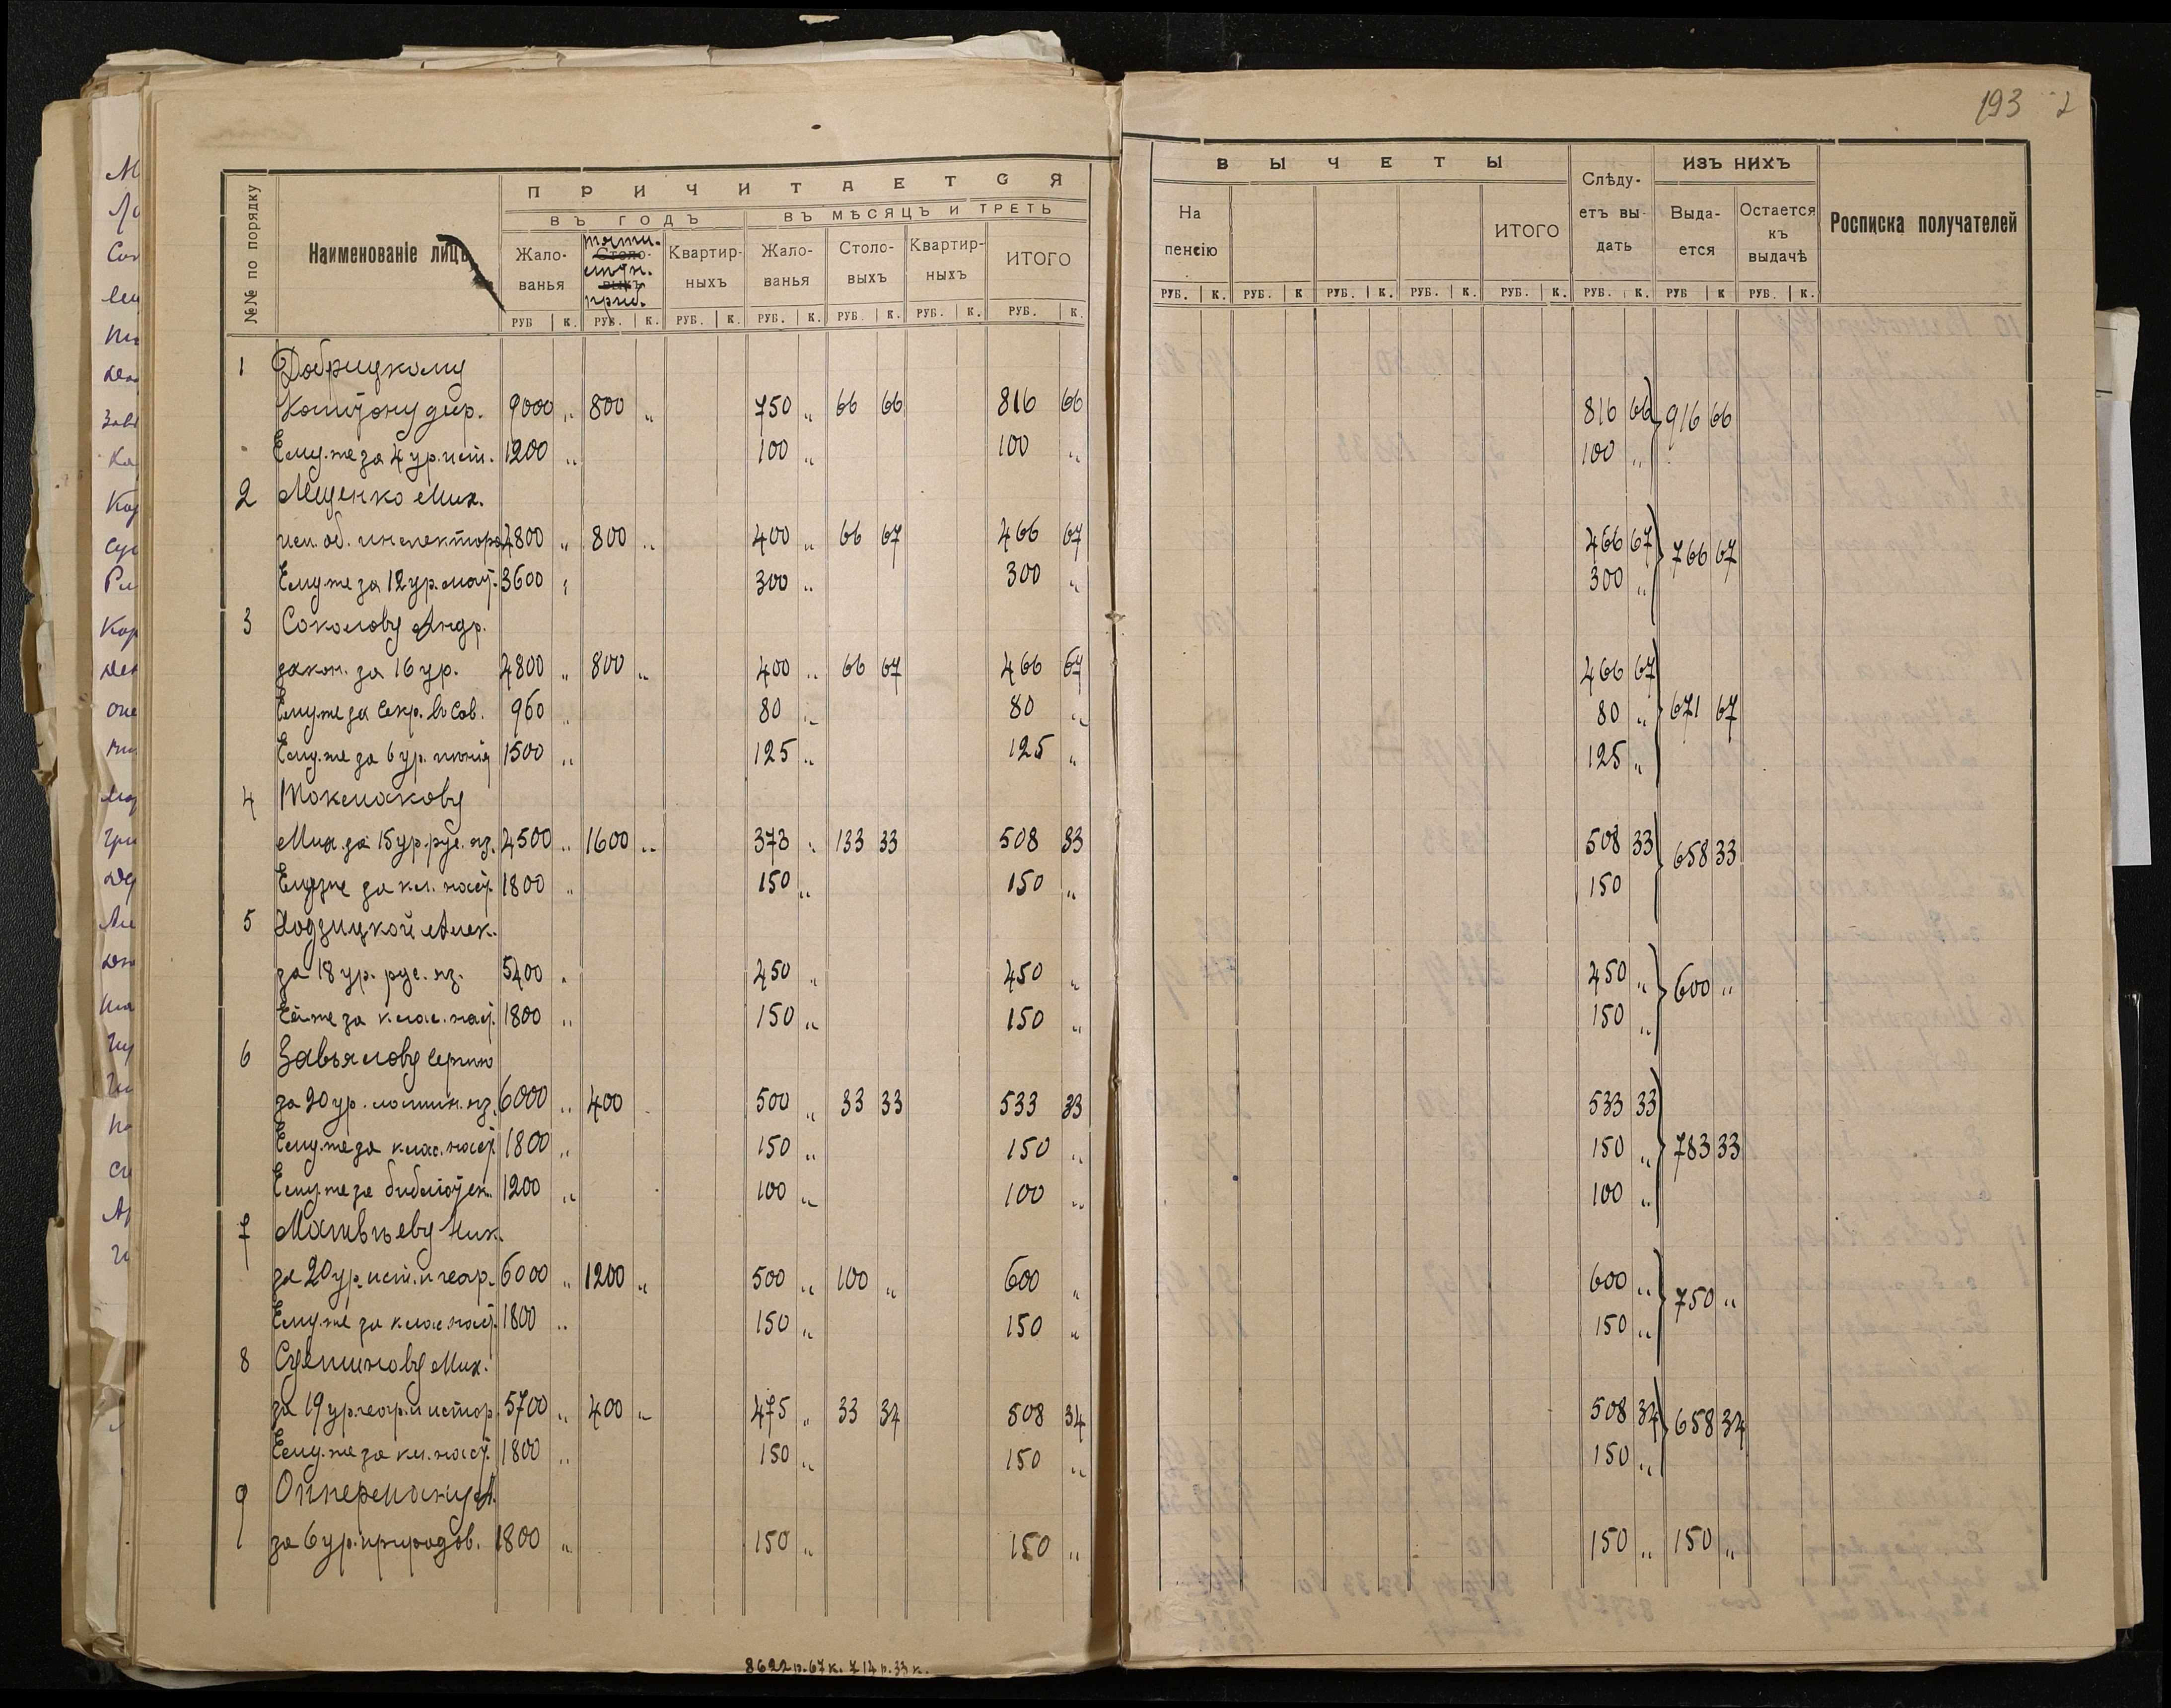 193 2
№№ по порядку
Наименованіе лицъ
ПРИЧИТАЕТСЯ
ВЪ ГОДЪ
ВЪ МѢСЯЦЪ И ТРЕТЬ
Жалованья
Столовыхъ
пяти. приб.
Квартирныхъ
Жалованья
Столовыхъ
Квартирныхъ
ИТОГО
РУБ К. РУБ. К. РУБ. К. РУБ. К. РУБ. К. РУБ. К. РУБ. К.
ВЫЧЕТЫ
На пенсію
ИТОГО
Слѣдуетъ выдать
ИЗЪ НИХЪ
Выдается
Остается къ выдачѣ
Росписка получателей
РУБ. К. РУБ. К РУБ. К. РУБ. К. РУБ. К. РУБ. К. РУБ К РУБ. К.
1 Добрицкому
дир. 9000 „ 800 „ 750 „ 66 66 816 66 816 66 916 66
Ему же за 4 ур. ист. 1200 „ 100 „ 100 „ 100 „
2 Лещенко Мих.
исп. об. инспектора 4800 „ 800 „ 400 „ 66 67 466 67 466 67 766 67
Ему же за 12 ур. мат. 3600 „ 300 „ 300 „ 300 „
3 Соколову Андр.
закон. за 16 ур. 4800 „ 800 „ 400 „ 66 67 466 67 466 67 671 67
Ему же за секр. въ сов. 960 „ 80 „ 80 „ 80 „
Ему же за 6 ур. 1500 „ 125 „ 125 „ 125 „
4 Токмакову
Мих. за 15 ур. рус. яз. 4500 „ 1600 „ 373 „ 133 33 508 33 508 33 658 33
Ему же за кл. наст. 1800 „ 150 „ 150 „ 150
5 Ходзицкой Алек.
за 18 ур. рус. яз. 5400 „ 450 „ 450 „ 450 „ 600 „
Ей же за клас. наст. 1800 „ 150 „ 150 „ 150 „
6 Завьялову Сергию
за 20 ур. латин. яз. 6000 „ 400 „ 500 „ 33 33 533 33 533 33 783 33
Ему же за клас. наст. 1800 „ 150 „ 150 „ 150 „
Ему же за библіотек. 1200 „ 100 „ 100 „ 100 „
7 Матвѣеву Ник.
за 20 ур. ист. и геогр. 6000 „ 1200 „ 500 „ 100 „ 600 „ 600 „ 750 „
Ему же за клас. наст. 1800 „ 150 „ 150 „ 150 „
8 Мих.
за 19 ур. геогр. и истор. 5700 „ 400 „ 475 „ 33 34 508 34 508 34 658 34
Ему же за кл. наст. 1800 „ 150 „ 150 „ 150 „
9 Опперману А.
за 6 ур. природов. 1800 „ 150 „ 150 „ 150 „ 150 „
8622 р. 67 к. 714 р. 33 к.